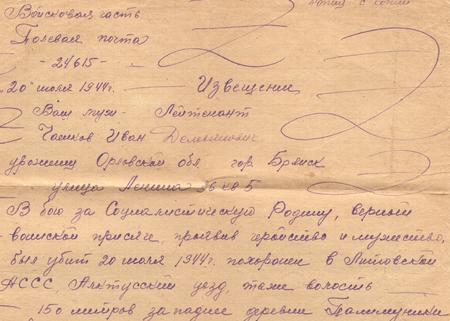 копия с копии
Войсковая часть
Полевая почта
- 24615 -
"20" июля 1944г. Извещение
Ваш муж - Лейтенант
Иван Демьянович
уроженец Орловской обл гор. Брянск
улица Ленина 36 кв 5
В бою за Социалистическую Родину, верный
воинской присяге, проявив геройство и мужество,
был убит 20 июля 1944г. похоронен в Литовской
АССС уезд, таже волость
150 метров западнее деревни